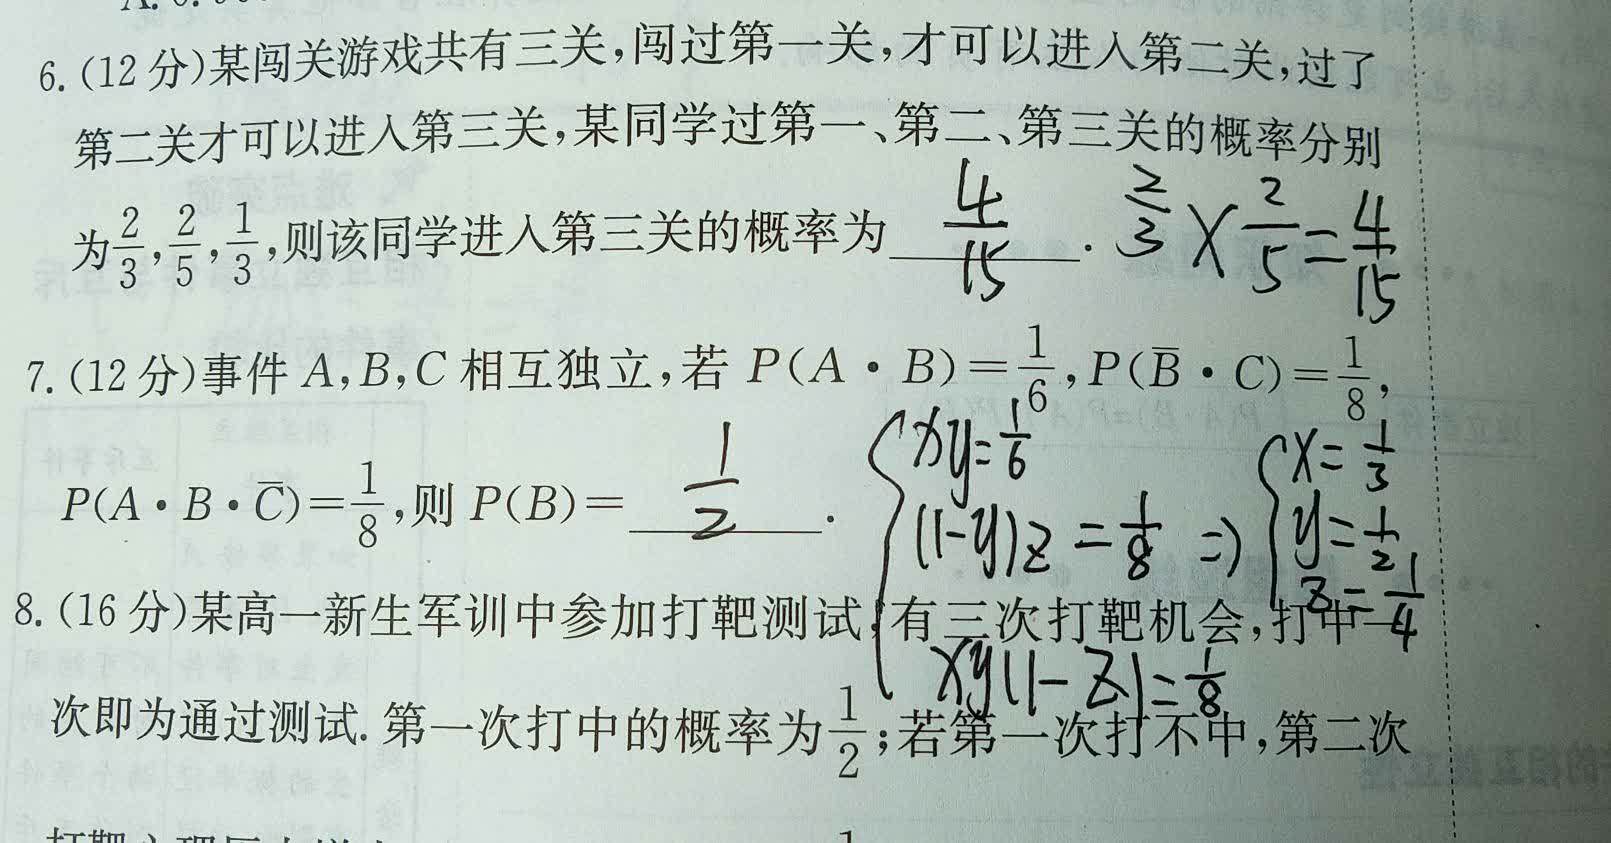 6.(12分)某闯关游戏共有三关,闯过第一关,才可以进入第二关,过了
第二关才可以进入第三关,某同学过第一、第二、第三关的概率分别
为2/3,2/5,1/3,则该同学进入第三关的概率为 4/15 . 2/3×2/5=4/15
7.(12分)事件A,B,C相互独立,若P(A·B)=1/6,P(B̅·C)=1/8,
P(A·B·C̅)=1/8,则P(B)= 1/2 .
xy=1/6
(1-y)z=1/8 ⇒
xy(1-z)=1/8
x=1/3
y=1/2
z=1/4
8.(16分)某高一新生军训中参加打靶测试,有三次打靶机会,打中一
次即为通过测试.第一次打中的概率为1/2;若第一次打不中,第二次